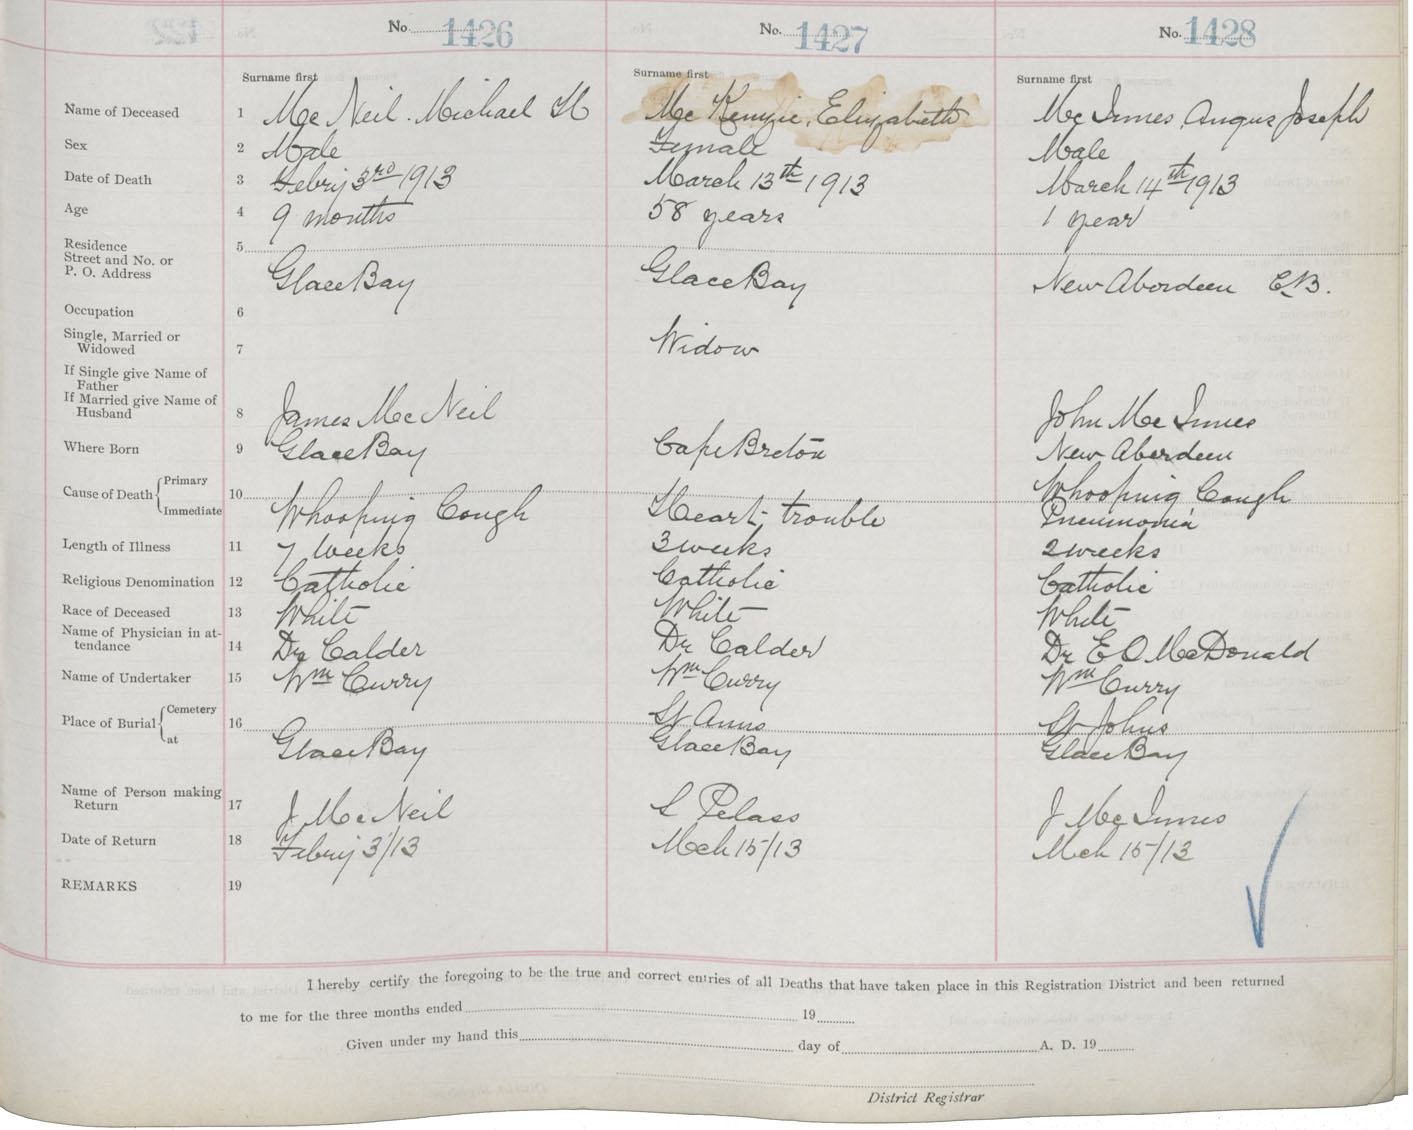 No. 1426 No. 1427 No. 1428
Surname first Surname first Surname first
Name of Deceased 1 Mc Neil. Michael H Mc Kenzie, Elizabeth Mc Innes, Angus Joseph
Sex 2 Male Female Male
Date of Death 3 Febry 3rd 1913 March 13th 1913 March 14th 1913
Age 4 9 months 58 years 1 year
Residence 5
Street and No. or
P. O. Address Glace Bay Glace Bay New Aberdeen C.B.
Occupation 6
Single, Married or
Widowed 7 Widow
If Single give Name of
Father
If Married give Name of
Husband 8 James McNeil John McInnes
Where Born 9 Glace Bay Cape Breton New Aberdeen
Cause of Death Primary 10 Whooping Cough
Immediate Whooping Cough Heart trouble Pneumonia
Length of Illness 11 7 weeks 3 weeks 2 weeks
Religious Denomination 12 Catholic Catholic Catholic
Race of Deceased 13 White White White
Name of Physician in at-
tendance 14 Dr Calder Dr Calder Dr E O McDonald
Name of Undertaker 15 Wm Curry Wm Curry Wm Curry
Place of Burial Cemetery 16 St Anns St Johns
at Glace Bay Glace Bay Glace Bay
Name of Person making
Return 17 J McNeil S J McInnes
Date of Return 18 Febry 3/13 Mch 15/13 Mch 15/13
REMARKS 19
I hereby certify the foregoing to be the true and correct entries of all Deaths that have taken place in this Registration District and been returned
to me for the three months ended 19
Given under my hand this day of A. D. 19
District Registrar